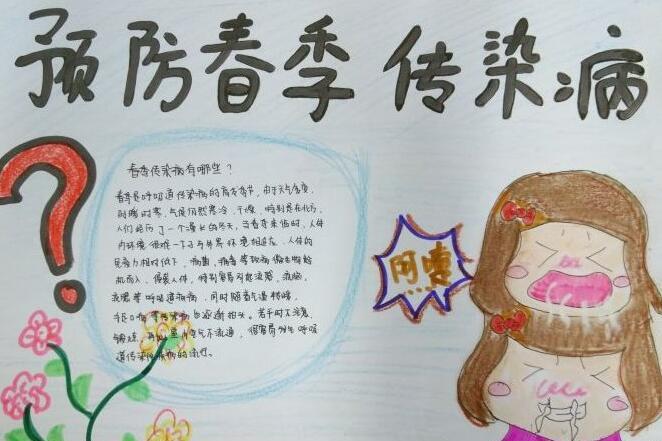 预防春季传染病
春季传染病有哪些？
春季是呼吸道传染病的高发季节，由于天气多变，
时暖时寒，气候仍然寒冷、干燥，特别是在北方，
人们经历了一个漫长的冬天，当春季来临时，人体
内环境很难一下子与外界环境相适应，人体的
免疫力相对低下，病菌、病毒等致病
机而入，侵袭人体，特别容易引起流感、流脑、
等呼吸道疾病，同时随着气温
手足口病等传染病也逐渐抬头。若平时不注意
锻炼，再加上室内空气不流通，很容易发生呼吸
道传染性疾病的流行。
阿嚏